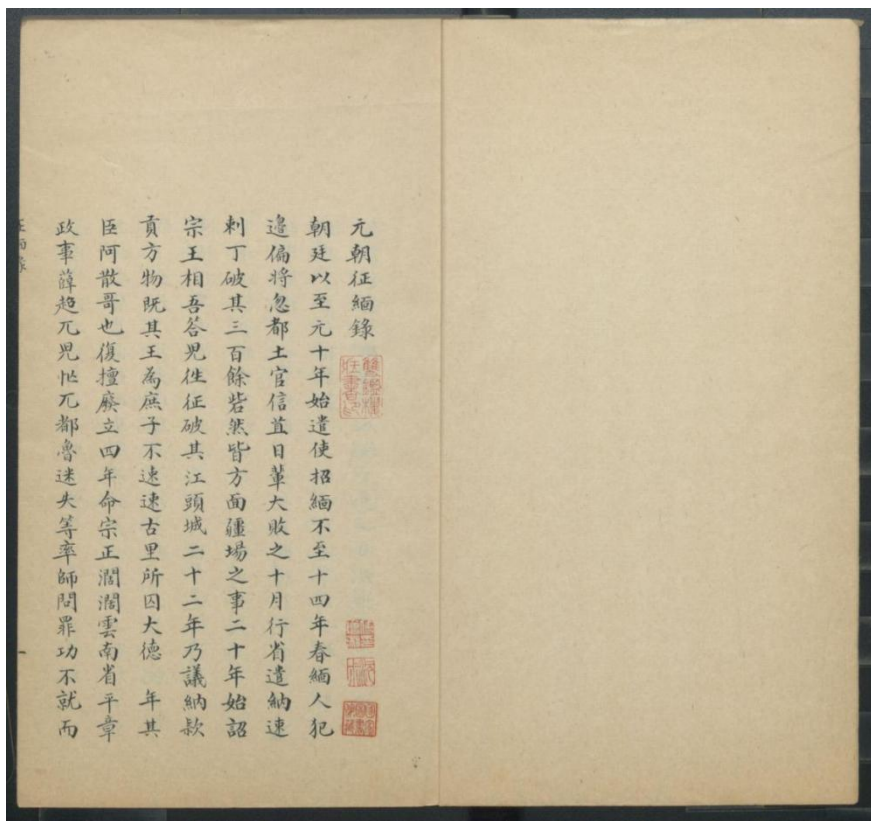 元朝征緬錄
朝廷以至元十年始遣使招緬不至十四年春緬人犯
邊偏將忽都土官信苴日輩大敗之十月行省遣納速
剌丁破其三百餘砦然皆方面疆場之事二十年始詔
宗王相吾答兒徃征破其江頭城二十二年乃議納款
貢方物既其王為庶子不速速古里所囚大德 年其
臣阿散哥也復擅廢立四年命宗正濶濶雲南省平章
政事薛超兀兒忙兀都魯迷失等率師問罪功不就而
征緬錄
一